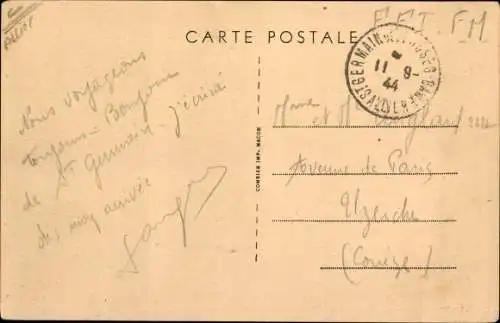 CARTE POSTALE
F.M
Nous voyageons
toujours - Bonjour
de St Germain - J'écrirai
dès mon arrivée
ST GERMAIN DES FOSSES
11 9-
44
ALLIER
Mme et M
Avenue de Paris
Uzerche
(Corrèze)
COMBIER IMP. MACON